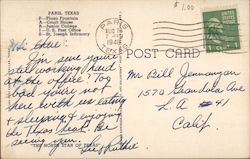 PARIS, TEXAS
P—Plaza Fountain
A—Court House
R—Junior College
I—U. S. Post Office
S—St. Joseph Infirmary
$1.00
PARIS
1948
TEXAS
POST CARD
Hi there!
I'm sure you're
still working hard
at the office! Too
bad you're not
here with us eating
& sleeping & enjoying
the Texas heat. Be
seeing you.
"THE NORTH STAR OF TEXAS"
Mr Bill
1570
L A #41
Calif.